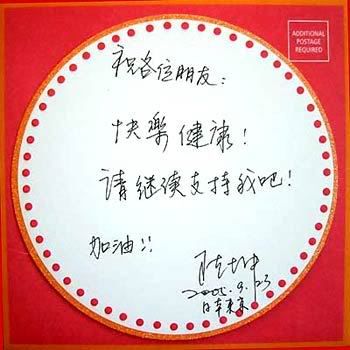 ADDITIONAL
POSTAGE
REQUIRED
祝各位朋友：
快樂健康！
请继续支持我吧！
加油！！
陆坤
2005.9.23
日本東京